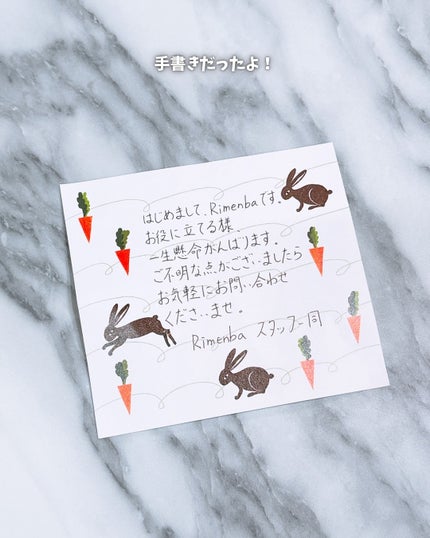 手書きだったよ！
はじめまして、Rimenbaです。
お役に立てる様、
一生懸命がんばります。
ご不明な点がございましたら
お気軽にお問い合わせ
くださいませ。
Rimenba スタッフ一同